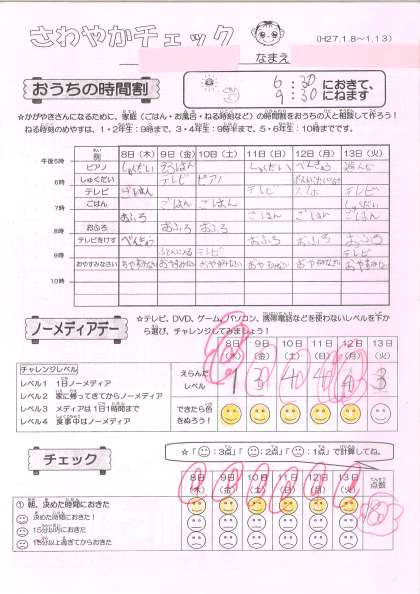 さわやかチェック
(H27.1.8～1.13)
なまえ
おうちの時間割
6:30におきて、
9:30にねます
☆かがやきさんになるために、家庭(ごはん・お風呂・ねる時刻など)の時間割をおうちの人と相談して作ろう!
ねる時刻のめやすは、1・2年生:9時まで、3・4年生:9時半まで、5・6年生:10時までです。
例 8日(木) 9日(金) 10日(土) 11日(日) 12日(月) 13日(火)
午後5時
ピアノ しゅくだい
6時
しゅくだい テレビ ピアノ
テレビ ごはん テレビ テレビ
7時
ごはん ごはん ごはん ごはん ごはん しゅくだい
8時
おふろ おふろ
おふろ おふろ ごはん
テレビをけす べんきょう おふろ おふろ おふろ
9時
テレビ
おやすみなさい おやすみなさい おやすみなさい おやすみなさい おやすみなさい
10時
ノーメディアデー
☆テレビ、DVD、ゲーム、パソコン、携帯電話などを使わないレベルを下から選び、チャレンジしてみましょう!
8日(木) 9日(金) 10日(土) 11日(日) 12日(月) 13日(火)
チャレンジレベル
レベル1 1日ノーメディア
レベル2 家に帰ってきてからノーメディア
レベル3 メディアは1日1時間まで
レベル4 食事中はノーメディア
えらんだレベル 1 3 4 4 4 3
できたら色をぬろう!
チェック
☆「:3点」「:2点」「:1点」で計算してね。
8日(木) 9日(金) 10日(土) 11日(日) 12日(月) 13日(火) 点数
① 朝、決めた時刻におきた
決めた時刻におきた!
15分以内におきた
15分以上過ぎてからおきた